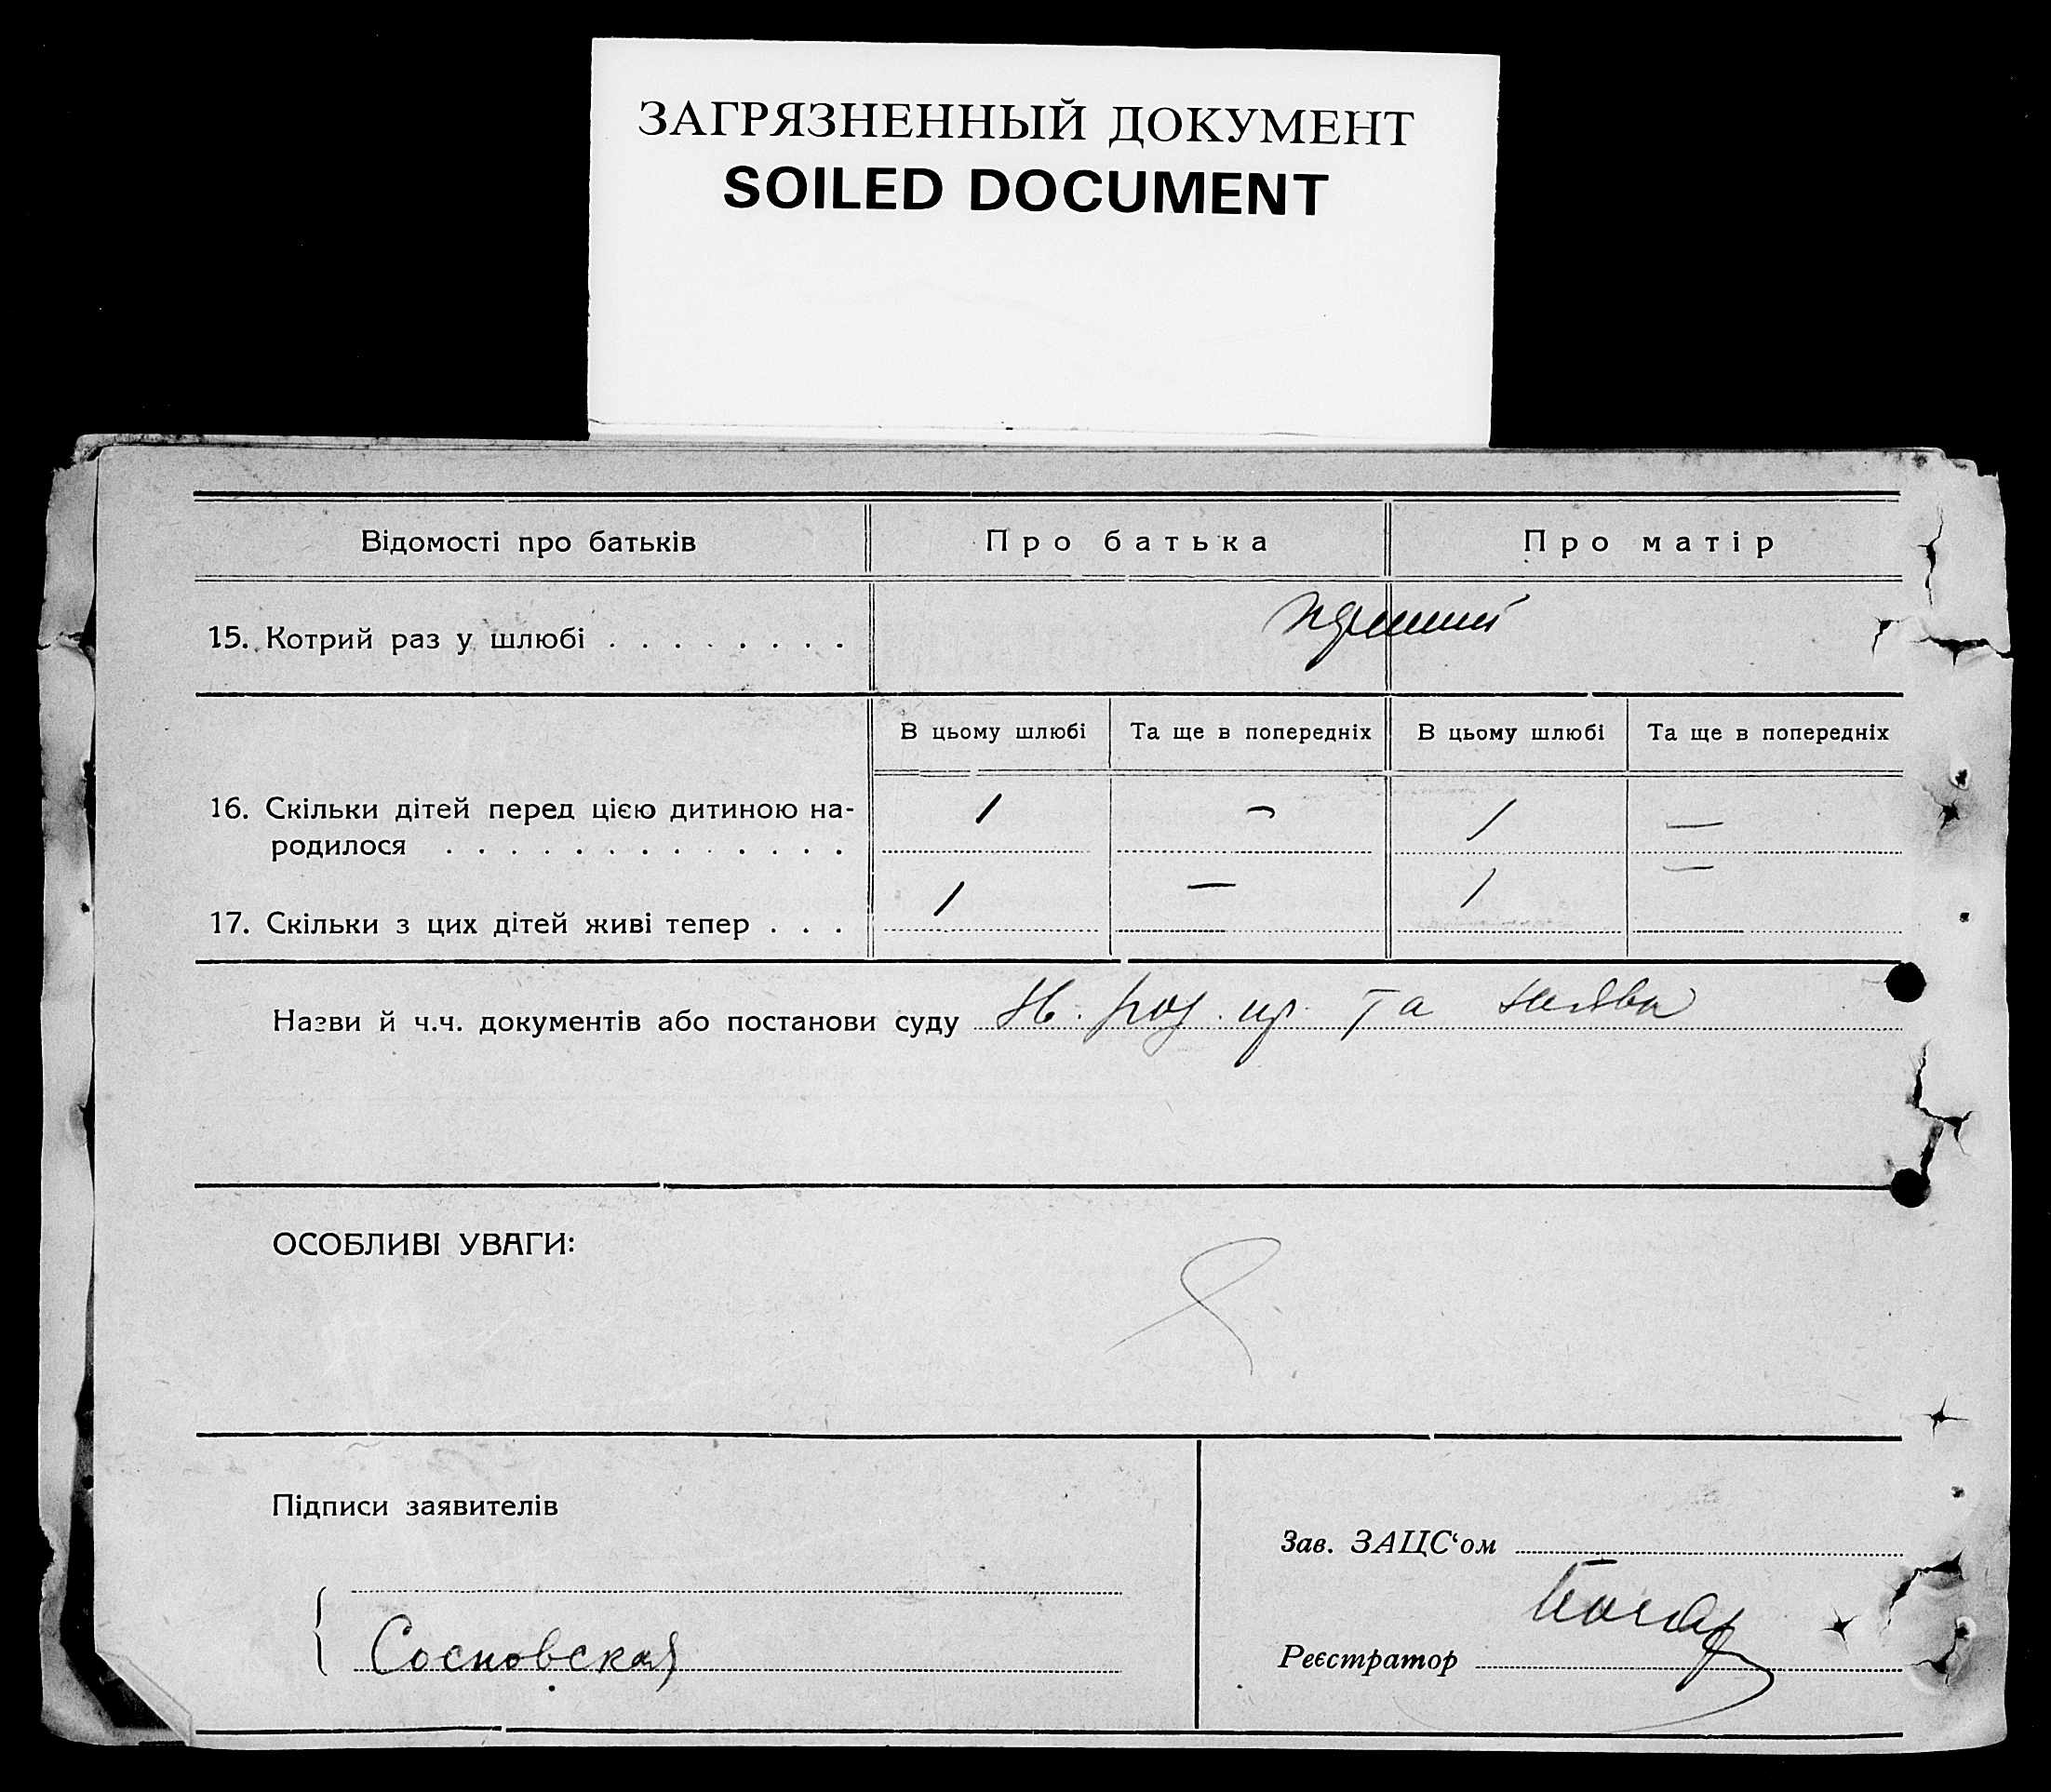 ЗАГРЯЗНЕННЫЙ ДОКУМЕНТ
SOILED DOCUMENT
Відомості про батьків
Про батька
Про матір
15. Котрий раз у шлюбі . . . . . . . .
В цьому шлюбі
Та ще в попередніх
В цьому шлюбі
Та ще в попередніх
16. Скільки дітей перед цією дитиною на-
родилося . . . . . . . . . . . . .
1 — 1 —
17. Скільки з цих дітей живі тепер . . .
1 — 1 —
Назви й ч.ч. документів або постанови суду та
ОСОБЛИВІ УВАГИ:
Підписи заявителів
Зав. ЗАЦС‘ом
Сосновская
Реєстратор